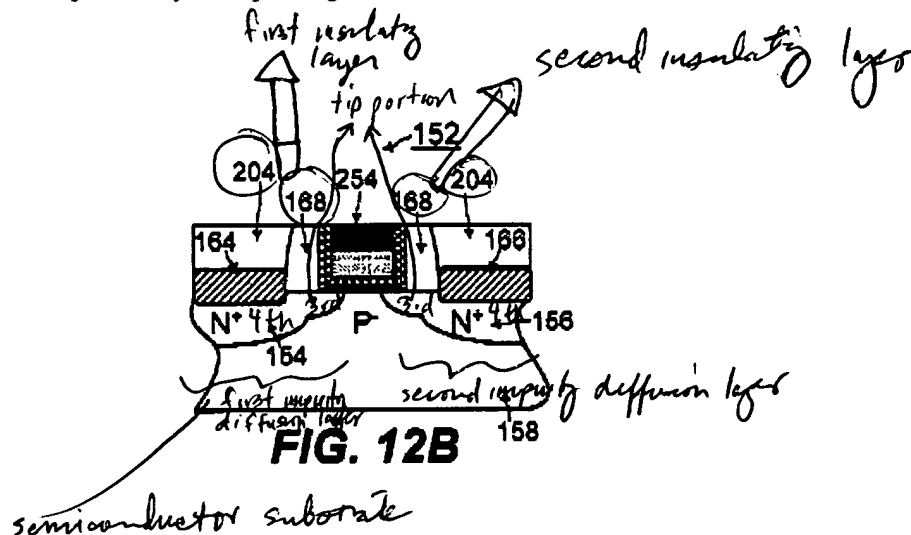 first insulatiz
layer
second insulatiz layer
tip portion
152
204
254
204
168
168
164
166
3rd
3rd
N+ 4th
P-
N+ 4th
156
154
first impurity
diffusion layer
second impurity diffusion layer
158
FIG. 12B
semiconductor substrate